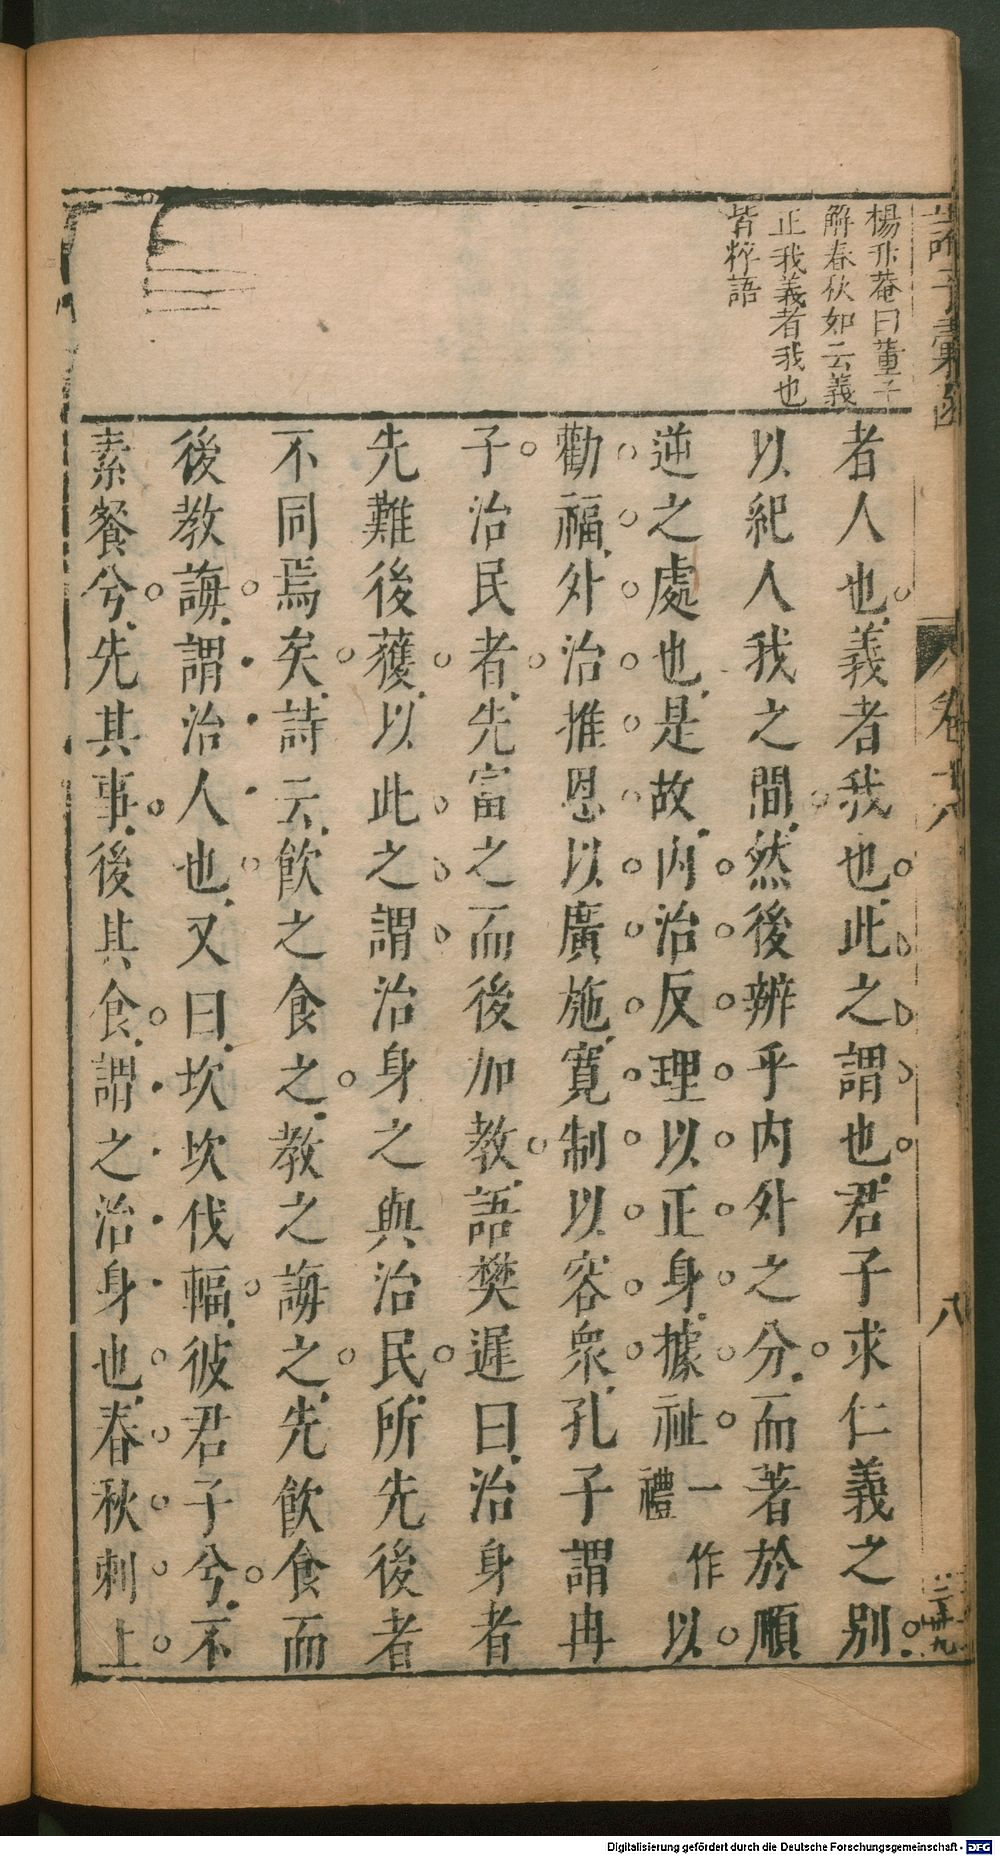 楊升菴曰董子
解春秋如云義
正我義者我也
皆粹語
者人也義者我也此之謂也君子求仁義之別
以紀人我之間然後辨乎內外之分而著於順
逆之處也是故內治反理以正身據祉一作禮以
勸福外治推恩以廣施寬制以容衆孔子謂冉
子治民者先富之而後加教語樊遲曰治身者
先難後獲以此之謂治身之與治民所先後者
不同焉矣詩云飲之食之教之誨之先飲食而
後教誨謂治人也又曰坎坎伐輻彼君子兮不
素餐兮先其事後其食謂之治身也春秋刺上
卷六
八
Digitalisierung gefördert durch die Deutsche Forschungsgemeinschaft - DFG